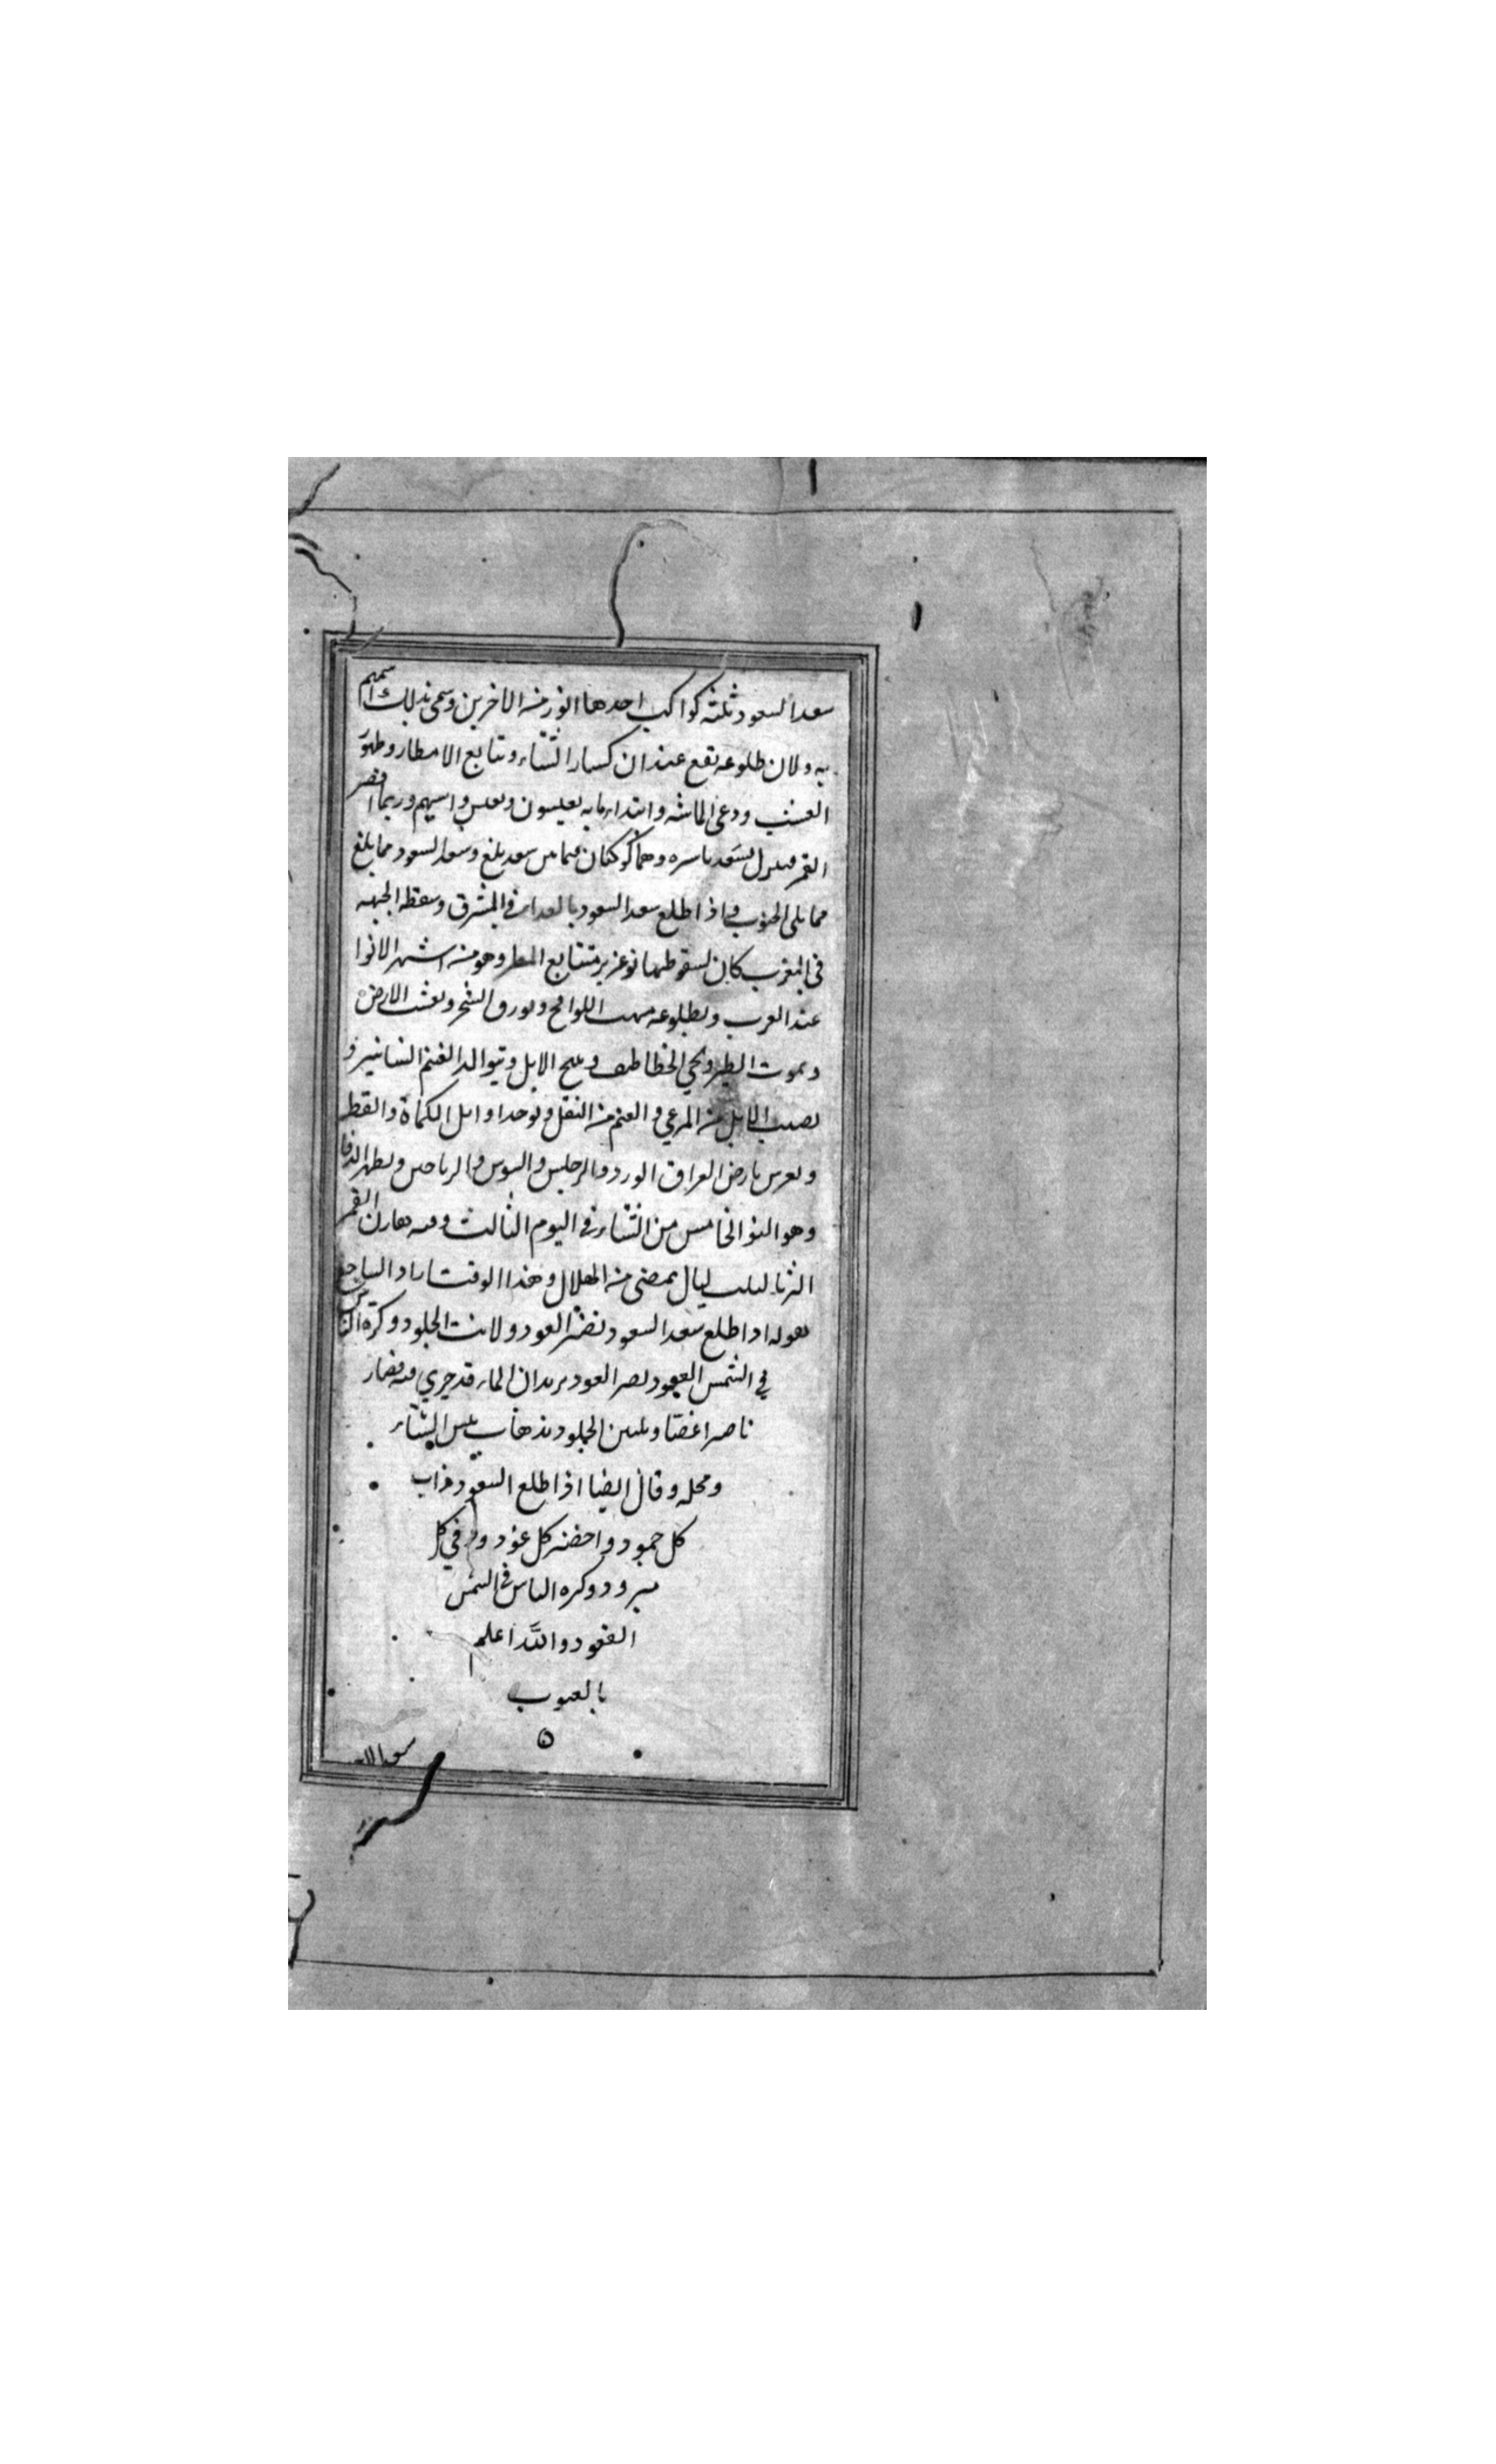 سعد السعود ثلثة كواكب احدها انور من الاخرين وسمى بذلك
به ولان طلوعه تقع عند ان كسار الشتاء وتتابع الامطار وظهور
العشب ورعى الماشه وابتداء مابه يعيشون
القمر وهما كوكبان فيما بين سعد بلع وسعد السعود مما
مما يلى الجنوب واذا طلع سعد السعود بالغداة فى المشرق وسقطه الجبهه
فى المغرب كان لسقوطها نو غزير متتابع المطر وهو من اشهر الانوا
عند العرب ولطلوعه مهب اللواقح ويورق الشجر وتعشب الارض
ويموت الطير ويجي الخطاطيف وبلح الابل ويتوالد الغنم
الابل من المرعي و الغنم من البقل ويوجد اوايل الكماة والقطر
بارض العراق الورد والرجليس والسوس والرياحين
وهو النو الخامس من الشتاء فى اليوم الثالث وفيه يقارن القمر
الثريا ليال يمضى من الهلال وهذا الوقت اراد الساجع
بقوله اذا طلع سعد السعود نضر العود ولانت الجلود وكره الناس
فى الشمس القعود نضر العود يريد ان الماء قد جري فيه فصار
ناضرا غضا ويلين الجلود بذهاب يبس الشتاء
ومحله وقال ايضا اذا طلع السعود ذاب
كل جمود واخضر كل عود ودفي كل
مبرود وكره الناس فى الشمس
القعود والله اعلم
بالغيوب